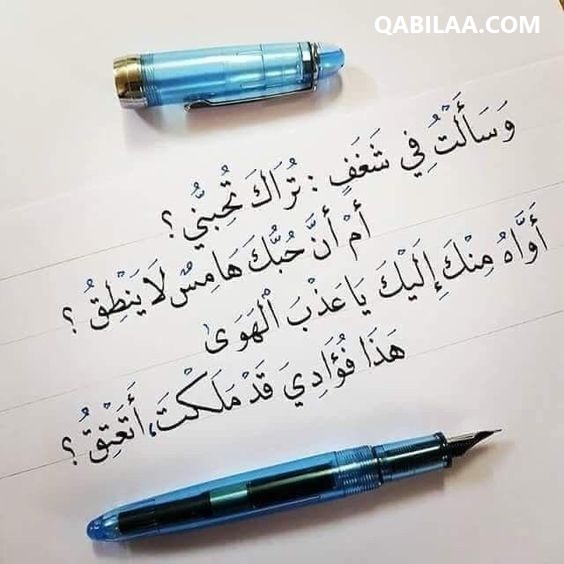 QABILAA.COM
وَسَأَلْتُ فِي شَغَفٍ : تُرَاكَ تُحِبُّنِي ؟
أَمْ أَنَّ حُبَّكَ هَامِسٌ لَا يَنْطِقُ ؟
أَوَّاهُ مِنْكَ إِلَيْكَ يَا عَذْبَ الْهَوَىٰ
هَذَا فُؤَادِيَ قَدْ مَلَكْتَ، أَتَعْتِقُ ؟